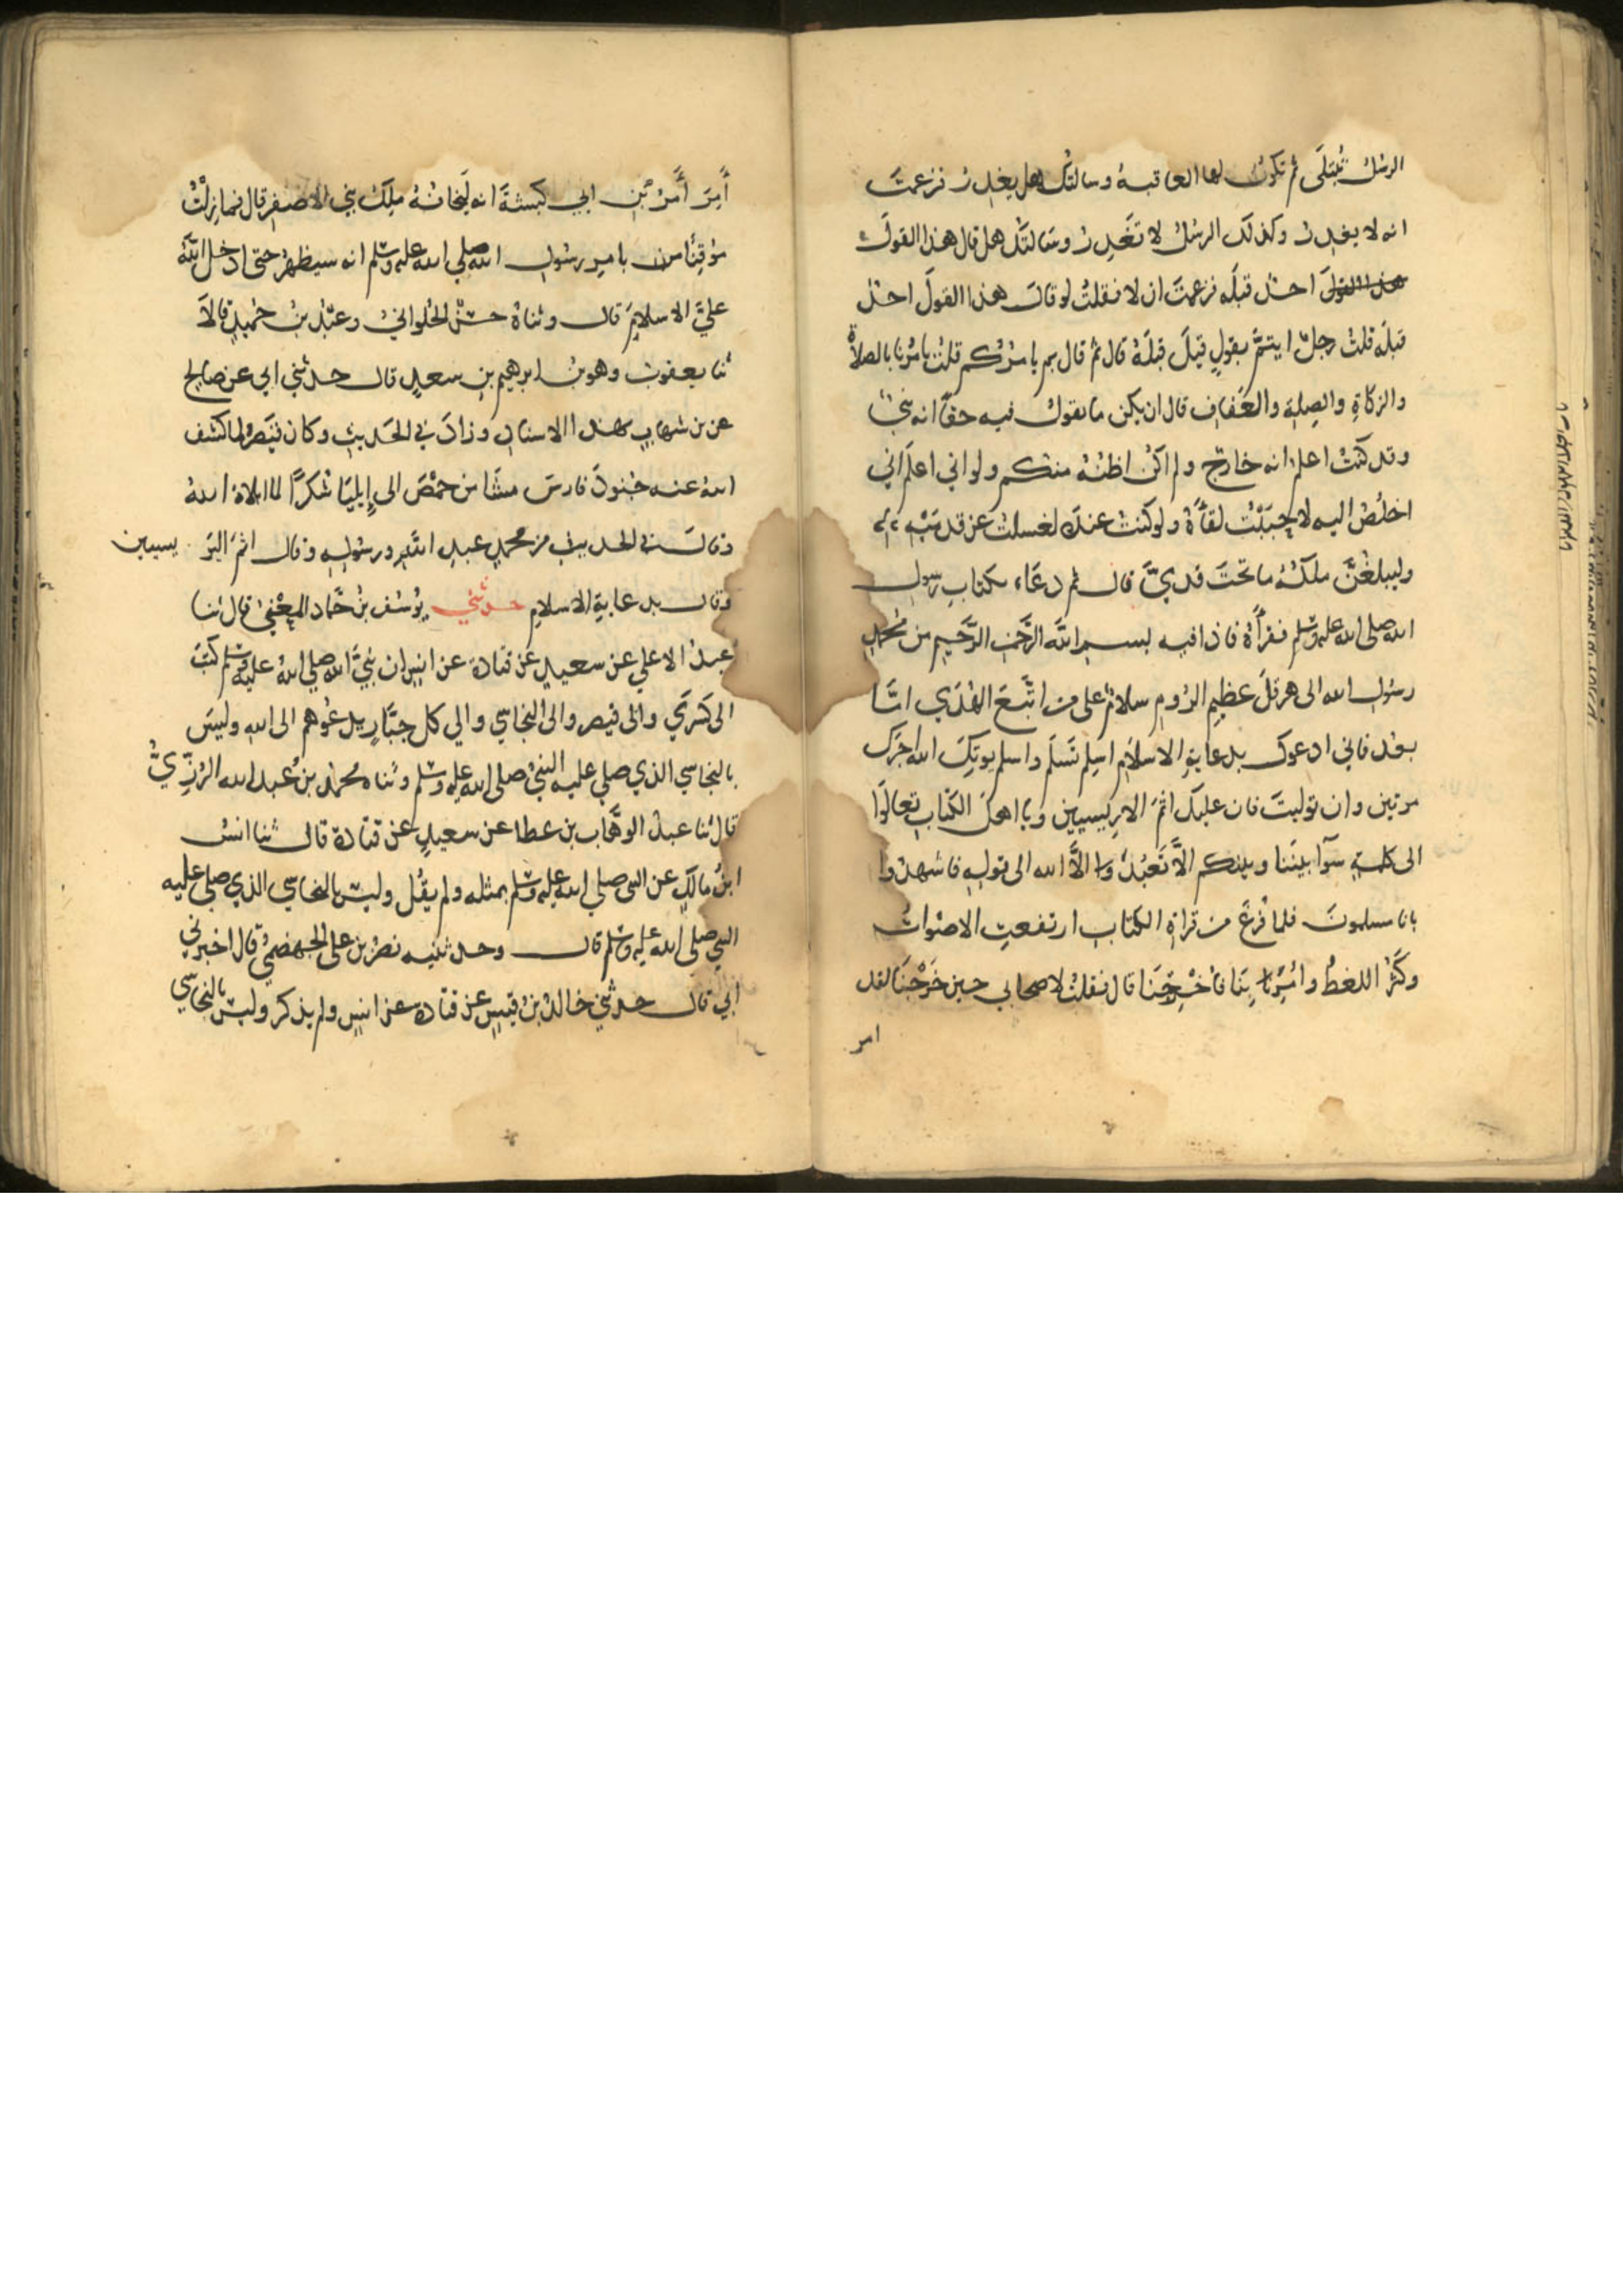 الرسُلُ تُبْتَلَى ثم تكونُ لها العاقبةُ وسالتُكَ هل يغدِرُ فزعمتَ
انه لا يغدِرُ وكذلك الرسُلُ لا تَغدِرُ وسَالتُكَ هل قال هذا القولَ
هذا القولَ احدٌ قبلَه فزعمتَ ان لا فقلتُ لو قالَ هذا القولَ احدٌ
قبلَه قلتُ رجلٌ ايتمَّ بقولٍ قيلَ قبلَهُ قال ثم قال بم يامرُكم قلتُ يامُرُنا بالصلاةِ
والزكاةِ والصِلةِ والعَفافِ قال ان يكن ما تقولُ فيه حقًا انه نبيٌّ
وقد كنتُ اعلمُ انه خارجٌ ولم اكنْ اظنُهُ منكم ولو اني اعلَم اني
اخلُصُ اليه لاحببْتُ لقاَءَهُ ولو كنتُ عندَه لغسلتُ عن قدمَيْهِ
وليبلغُنَّ ملكُهُ ما تحتَ قدميَّ قال ثم دعَاء بكتابِ رسولِ
الله صلى الله عليه وسلم فقرأَهُ فاذا فيه بسم الله الرَّحمن الرَّحيم من محمدٍ
رسُولِ الله الى هرقلَ عظيمِ الرُومِ سلامٌ على من اتَّبعَ الهُدَي امَّا
بعْدُ فاني ادعوك بدعايةِ الاسلامِ اسلِم تَسْلَم واسلم يوتِكَ الله اجرَك
مرتين وان توليتَ فان عليك اثمَ الاريسيين ويا اهلَ الكتابِ تعالوا
الى كلمةٍ سَوآ بيننَا وبينكم الاَّ نَعْبُدَ الاَّ الله الى قولهِ فاشهدُوا
بانا مسلمونَ فلما فُرغَ من قراةِ الكتابِ ارتفعتِ الاصْواتُ
وكَثُرَ اللغطُ وامُرَ بِنَا فاُخْرِجْنَا قال فقلتُ لاصحابي حين خَرَجْنَا لقد
امر
أَمِرَ أَمْرُ بْنِ ابي كَبشةَ انه لَيَخافُهُ ملِكُ بني الاصفرِ قال فما زِلْتُ
مُوقِنًا من بامرِ رسُولِ الله صلي الله عليه وسلم انه سيظهرُ حتى ادخلَ اللهُ
عليَّ الاسلامَ قال وثناهُ حسَنٌ الحُلوانيُ وعبْدُ بنُ حُميدٍ قالاَ
ثنا يعقوبُ وهو بنُ ابرهيم بنِ سعدٍ قال حدثني ابي عن صالحٍ
عن بن شهابٍ بهذا الاسنادِ وزادَ في الحَديثِ وكان قيصَرُ لما كشف
اللهُ عنه جُنودَ فارسَ مشَا من حمْصَ الى اِيليَا شُكرًا لما ابلاهُ اللهُ
وقالَ في الحديثِ من محمدٍ عبدِ اللهِ ورسُولِهِ وقال اثمَ اليرَ يسيين
وقال بدعايةِ الاسلامِ حدثني يُوسُف بنُ حَمَّادٍ المَعْنِيُ قال ثنا
عبدُ الاعلي عن سعيدٍ عَن قتادةَ عن انسٍ ان نبيَّ الله صلي الله عليه وسلم كتبَ
الى كسْرَي والى قيصر والى النجاسي والي كل جبَّارٍ يدعُوهم الى اللهِ وليسَ
بالنجاسي الذي صلي عليه النبيُ صلى الله عليه وسلم وثناه محمدُ بنُ عبد الله الرُزِّيُّ
قال ثنا عبدُ الوهَّاب بن عطا عن سعيدٍ عن قتادةَ قال ثنا انسُ
ابنُ مالكٍ عن النبي صلي الله عليه وسلم بمثله ولم يقُل وليسَ بالنجاسي الذي صلي عليه
النبي صلي الله عليه وسلم قال وحدثنيه نصرُ بن علي الجهضميُ قال اخبرني
ابي قال حدثني خالدُ بنُ قيسٍ عن قتادهَ عن انسٍ ولم يذكر وليسَ بالنجاسي